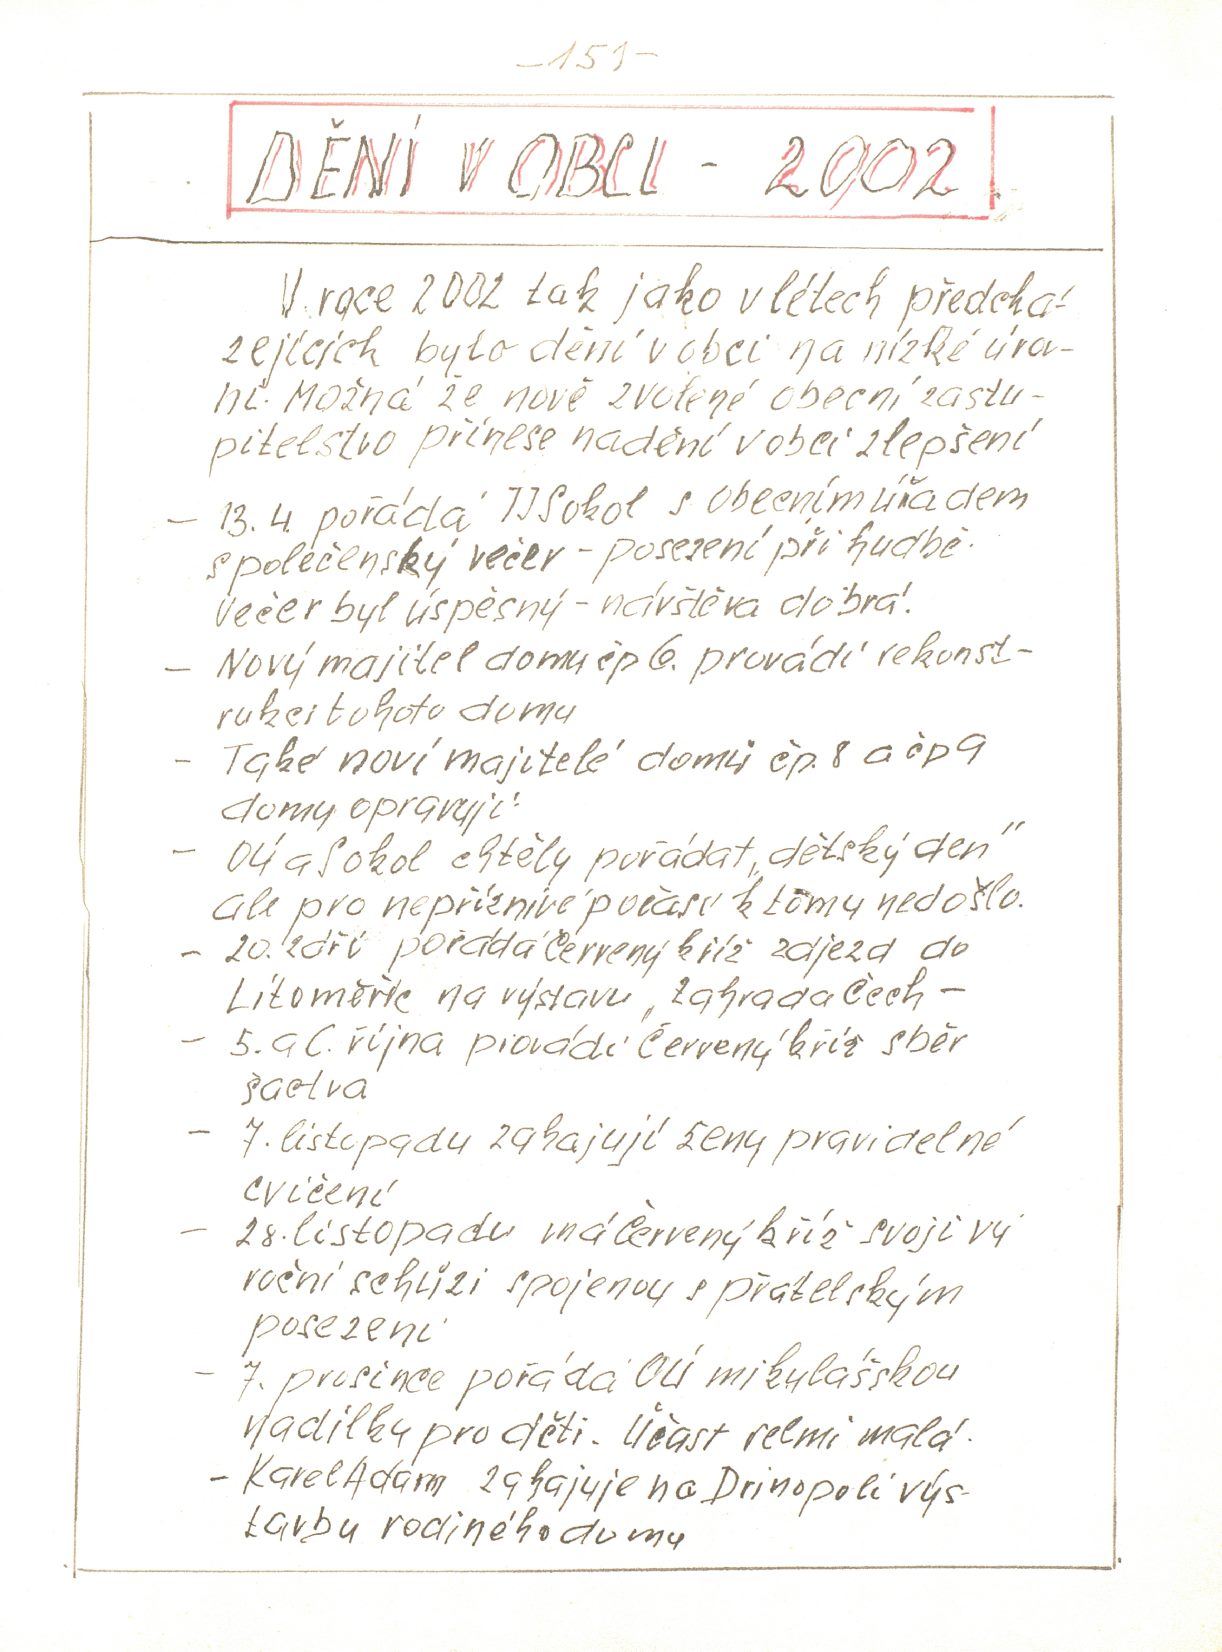 -151-
DĚNÍ V OBCI - 2002
V roce 2002 tak jako v létech předchá-
zejících bylo dění v obci na nízké úrov-
ni. Možná že nově zvolené obecní zastu-
pitelstvo přinese na dění v obci zlepšení
- 13. 4. pořádá TJ Sokol s Obecním úřadem
společenský večer - posezení při hudbě.
Večer byl úspěsný - návštěva dobrá.
- Nový majitel domu čp 6. provádí rekonst-
rukci tohoto domu
- Také noví majitelé domů čp. 8 a čp 9
domy opravují.
- OÚ a Sokol chtěly pořádat „dětský den"
ale pro nepříznivé počasí k tomu nedošlo.
- 20. září pořádá Červený kříž zdjezd do
Litoměřic na výstavu „Zahrada Čech -
- 5. a 6. října provádí Červený kříž sběr
šactva
- 7. listopadu zahajují ženy pravidelné
cvičení
- 28. listopadu má Červený kříž svoji vý
roční schůzi spojenou s přátelským
posezení
- 7. prosince pořádá OÚ mikulášskou
nadílku pro děti. Účast velmi malá.
- Karel Adam zahajuje na Drinopoli výs-
tavbu rodiného domu